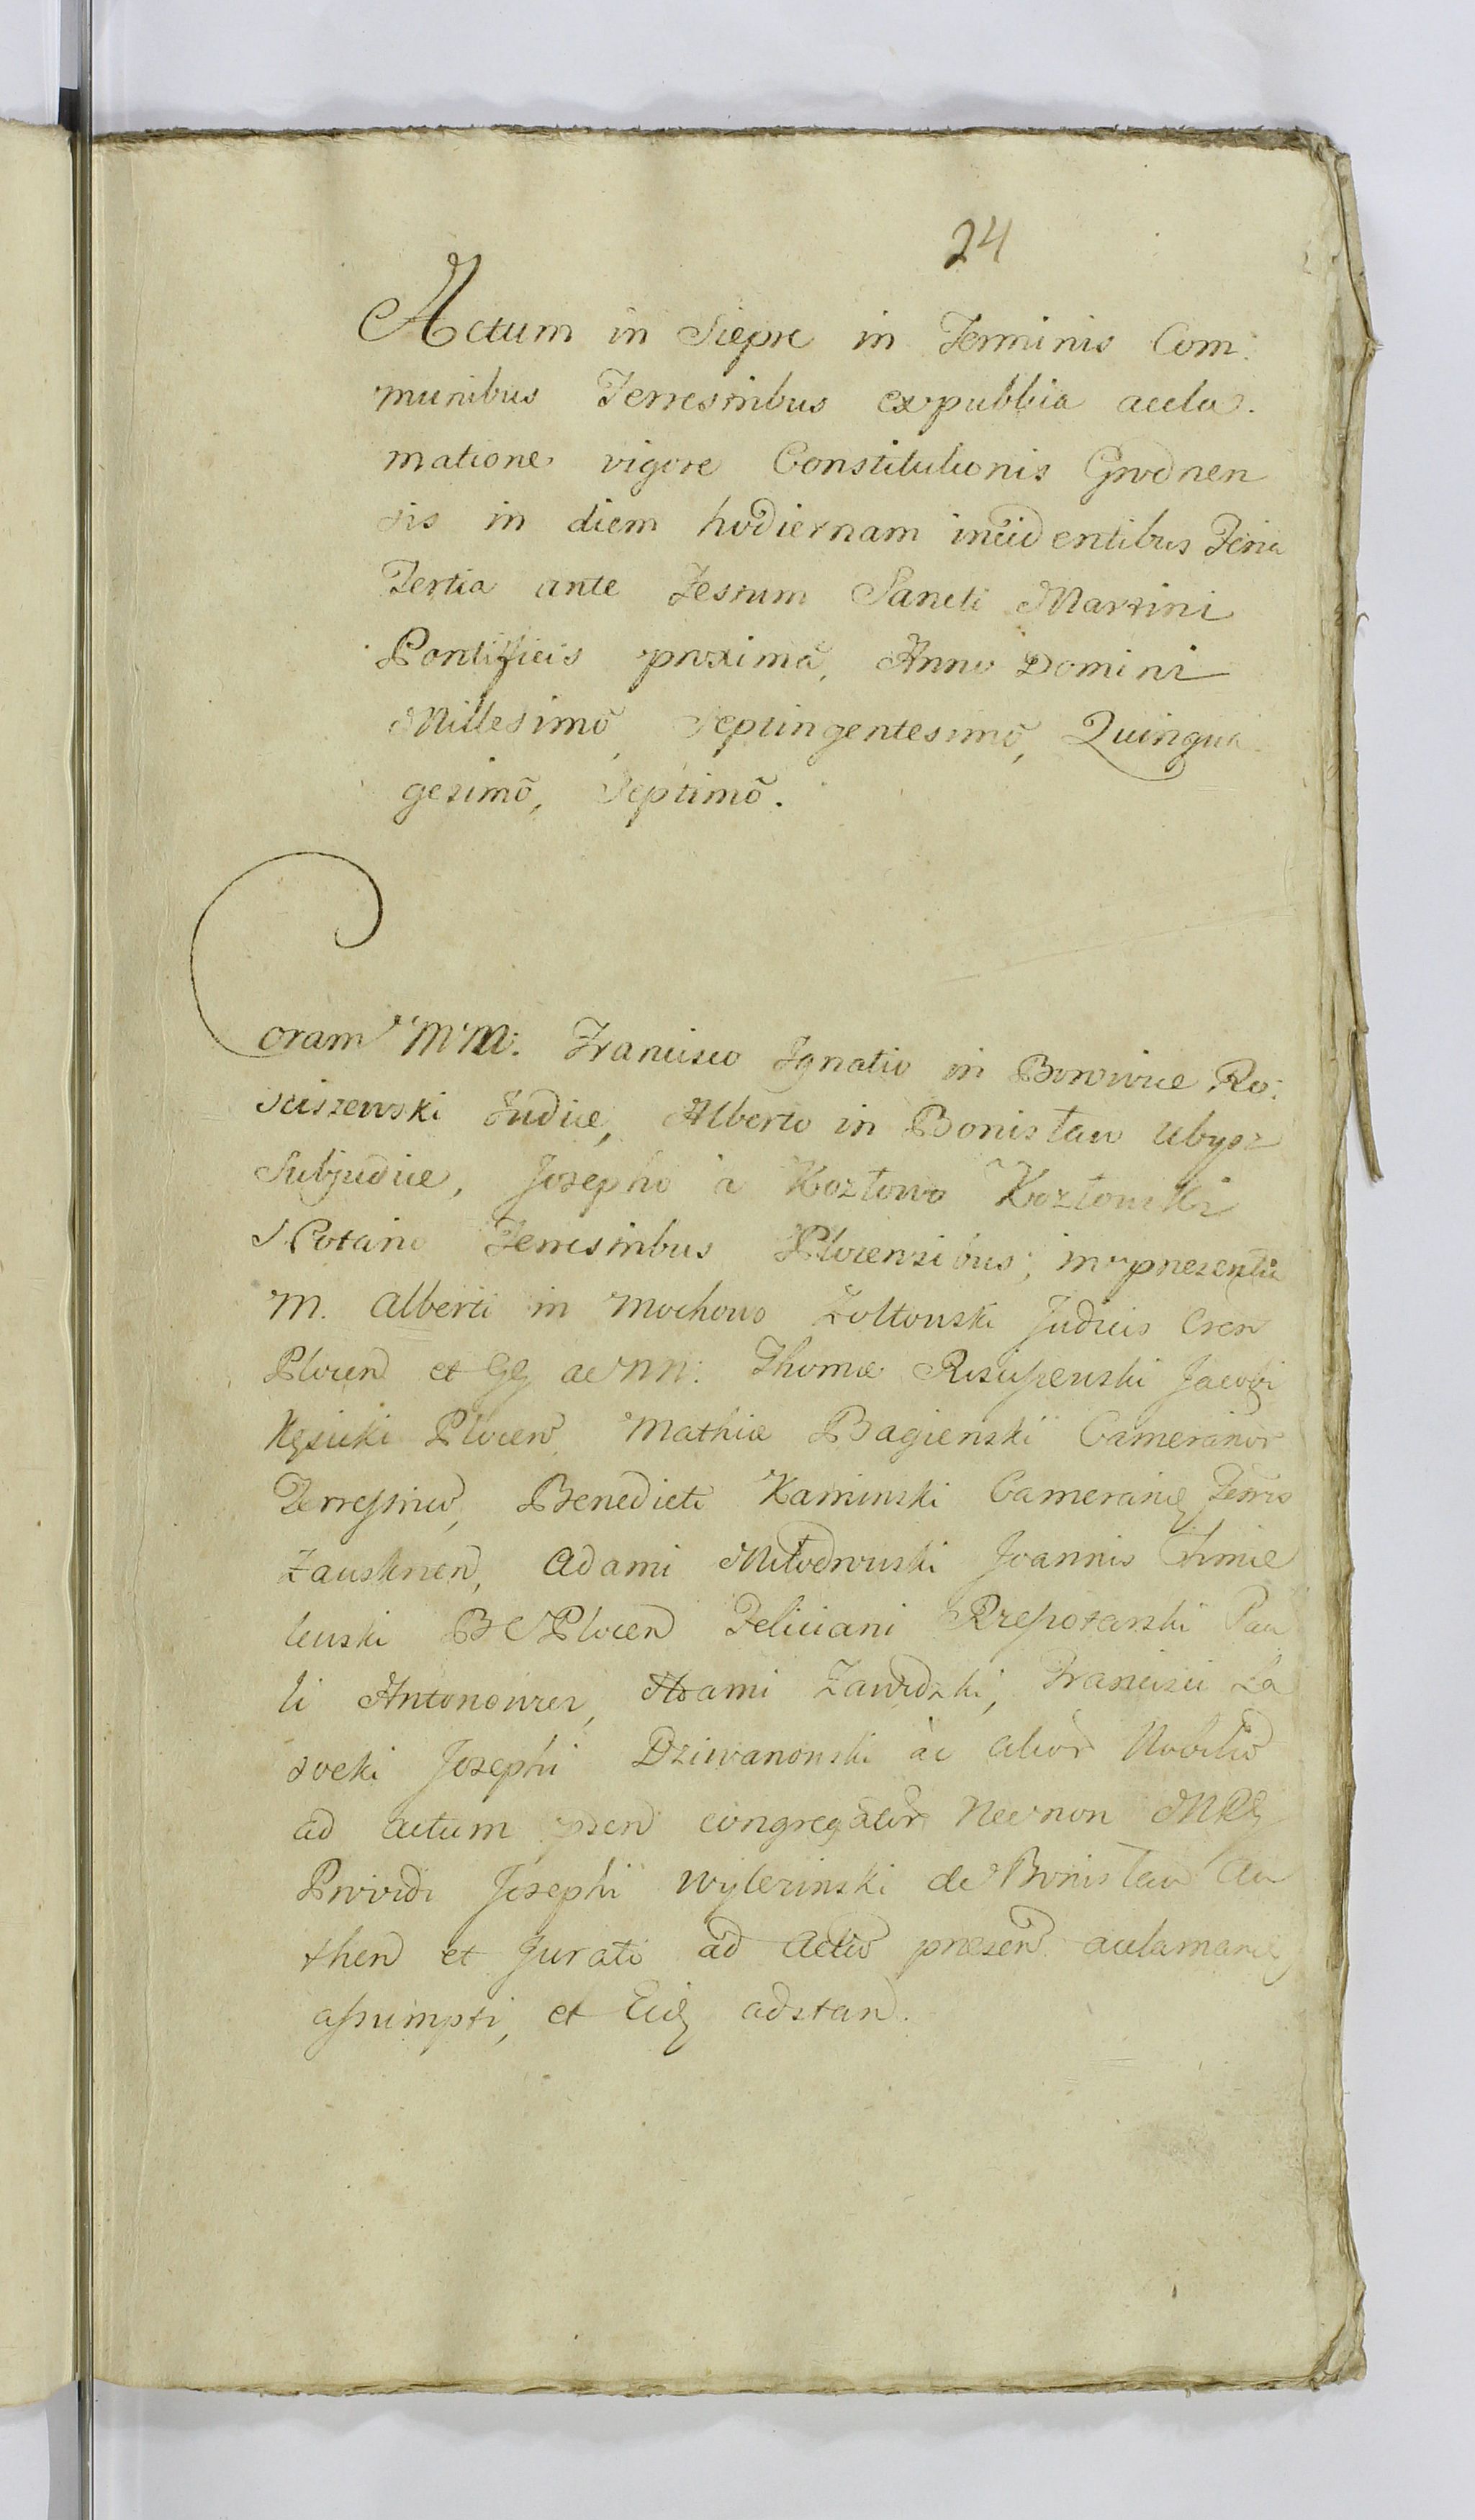 24
Actum in Siepre in Terminis Com:
munibus Terrestribus ex publica accla.
matione vigore Constitutionis Grodnen
sis in diem hodiernam incidentibus Feria
Tertia ante Festum Sancti Martini
Pontificis proximâ, Anno Domini
Millesimô, Septingentesimô, Quinqua
gesimô, Septimô.
Coram MM: Francisco Ignatio in Borowice Ro:
sciszewski Judice, Alberto in Bonisław Ubysz
Subjudice, Josepho à Kozłowo Kozłowski
Notario Terrestribus Plocensibus; in præsentia
M. Alberti in Mochowo Zołtowski Judicis Cren
Plocen et GG ac NN: Thomæ Rosciszewski Jacobi
Kęsicki Plocen, Mathiæ Bagienski Camerarior
Terrestriu, Benedicti Kaminski Camerarii Terris
Zauskrnen, Adami Młodowski Joannis Chmie
lewski B C Plocen Feliciani Przepotarski Pau
li Antonowicz, Adami Zawidzki, Francisci La
socki Josephi Dziwanowski ac alior Nobiliu
ad actum præsen congregator Nec non
Providi Josephi Wylezinski de Bonisław Au
then et Jurati ad Actu præsen acclamanđ
assumpti, et adstan.